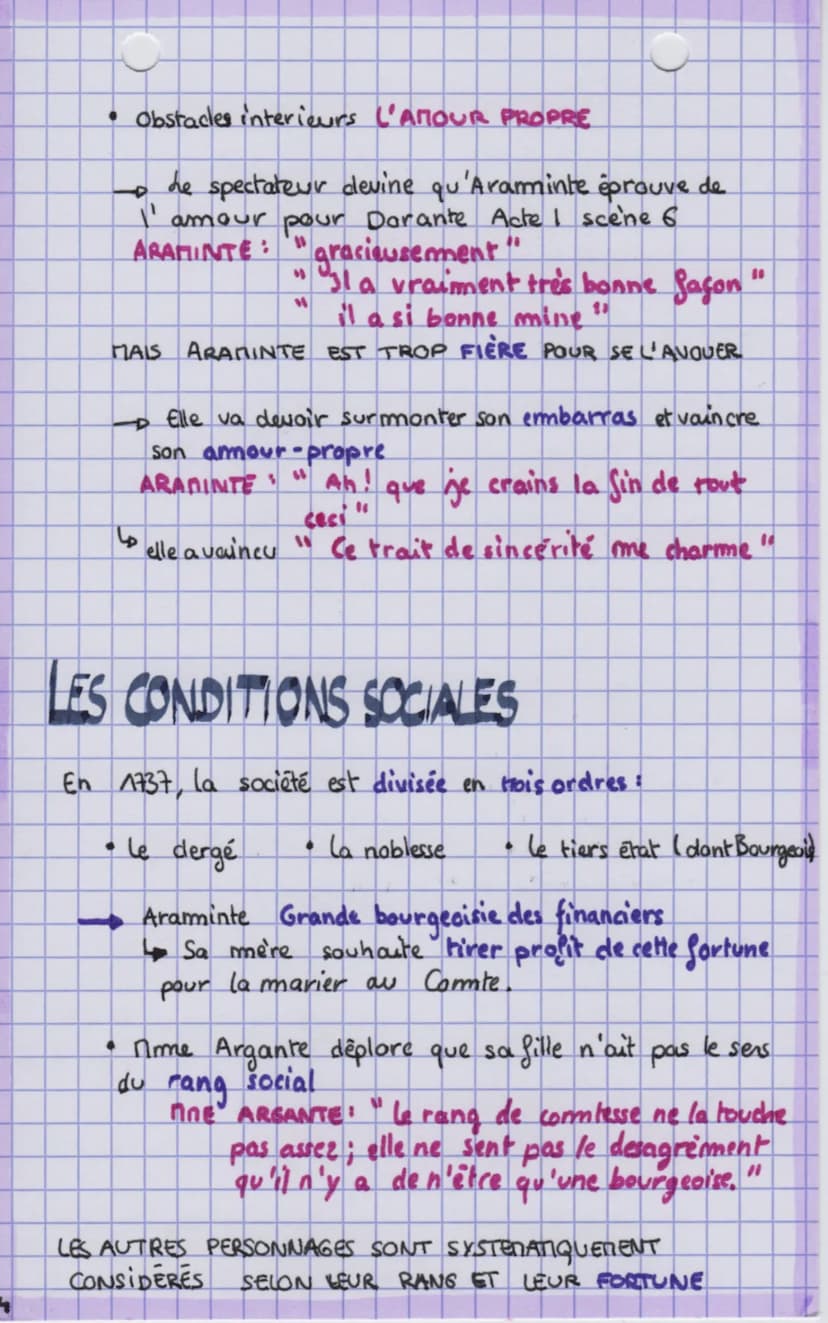 • Obstacles interieurs L'AMOUR PROPRE
→ Le spectateur devine qu'Araminte éprouve de
l'amour pour Dorante Acte I scène 6
ARAMINTE : "gracieusement"
" Il a vraiment très bonne façon "
" il a si bonne mine "
MAIS ARAMINTE EST TROP FIÈRE POUR SE L'AVOUER
→ Elle va devoir surmonter son embarras et vaincre
son amour-propre
ARAMINTE : " Ah! que je crains la fin de tout
ceci "
↳ elle a vaincu " Ce trait de sincérité me charme "
LES CONDITIONS SOCIALES
En 1737, la société est divisée en trois ordres :
• le clergé • la noblesse • le tiers état (dont Bourgeois)
→ Araminte Grande bourgeoisie des financiers
↳ Sa mère souhaite tirer profit de cette fortune
pour la marier au Comte.
• Mme Argante déplore que sa fille n'ait pas le sens
du rang social
MME ARGANTE : " Le rang de comtesse ne la touche
pas assez ; elle ne sent pas le desagrément
qu'il n'y a de n'être qu'une bourgeoise. "
LES AUTRES PERSONNAGES SONT SYSTEMATIQUEMENT
CONSIDÉRÉS SELON LEUR RANG ET LEUR FORTUNE